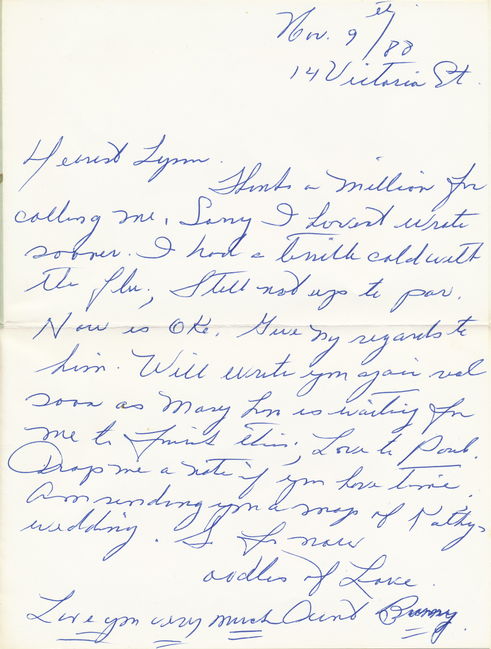 Nov. 9th/88
14 Victoria St.
Dearest Lynn.
Thanks a million for
calling me. Sorry I havent wrote
sooner. I had a terrible cold with
the flu. Still not up to par.
Now is OKe. Give my regards to
him. Will write you again real
soon as Mary Lou is waiting for
me to finish this. Love to Paul.
Drop me a note if you have time.
Am sending you a map of Kathys
wedding. So for now
oodles of Love.
Love you very much Aunt Bunny.